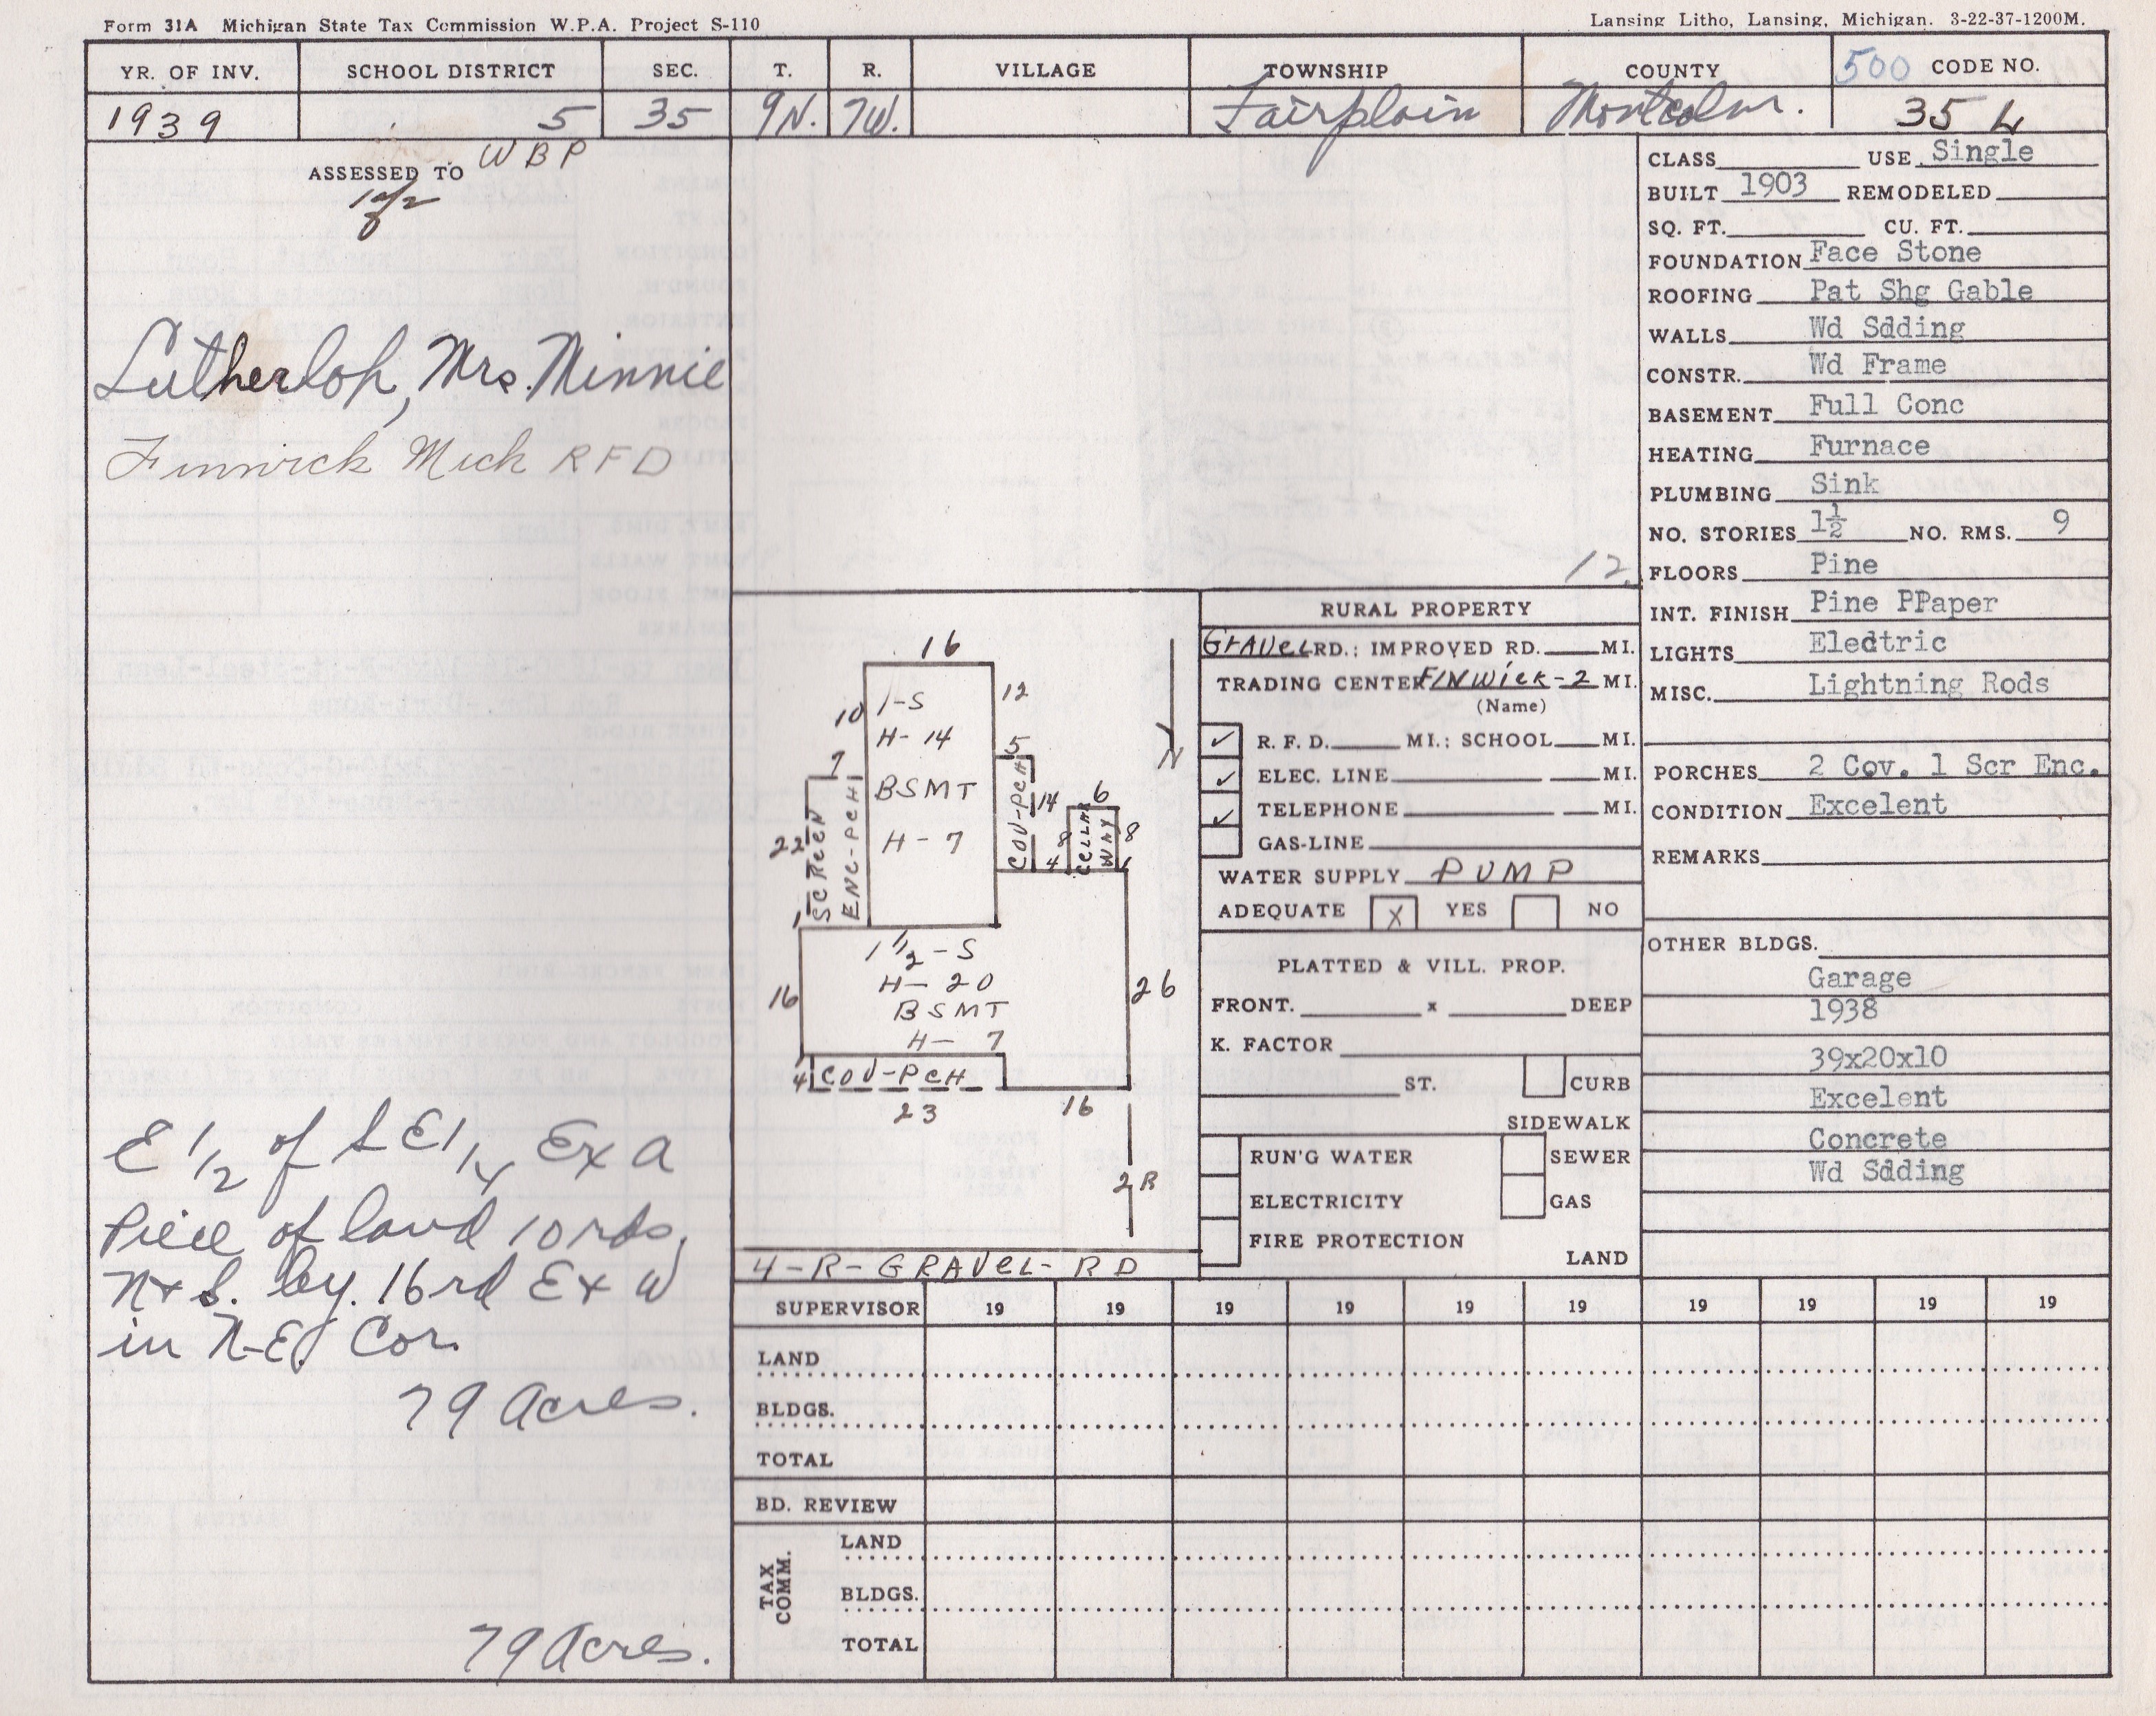 Form 31A Michigan State Tax Commission W.P.A. Project S-110
Lansing Litho, Lansing, Michigan. 3-22-37-1200M.
YR. OF INV. SCHOOL DISTRICT SEC. T. R. VILLAGE TOWNSHIP COUNTY 500 CODE NO.
1939 5 35 9N. 7W. Fairplain Montcalm. 35 L
ASSESSED TO WBP
Lutherloh, Mrs. Minnie
Finwick Mich RFD
E 1/2 of S E 1/4 Ex a
Piece of land 10 rds,
N & S. by. 16 rd E & W
in N-E Cor.
79 Acres.
79 Acres.
12
16
1-S
H-14
BSMT
H-7
10
12
7
5
COV-PCH
14
6
CELLAR
WAY
8
8
4
22
SCREEN
ENC-PCH
1
1 1/2-S
H-20
BSMT
H-7
16
26
4
COV-PCH
23
16
N
2R
4-R-GRAVEL-RD
RURAL PROPERTY
GRAVEL RD.; IMPROVED RD. MI.
TRADING CENTER FINWICK-2 MI.
(Name)
✓ R. F. D. MI.; SCHOOL MI.
✓ ELEC. LINE MI.
✓ TELEPHONE MI.
GAS-LINE
WATER SUPPLY PUMP
ADEQUATE X YES NO
PLATTED & VILL. PROP.
FRONT. x DEEP
K. FACTOR
ST. CURB
SIDEWALK
RUN'G WATER SEWER
ELECTRICITY GAS
FIRE PROTECTION
LAND
CLASS USE Single
BUILT 1903 REMODELED
SQ. FT. CU. FT.
FOUNDATION Face Stone
ROOFING Pat Shg Gable
WALLS Wd Sdding
CONSTR. Wd Frame
BASEMENT Full Conc
HEATING Furnace
PLUMBING Sink
NO. STORIES 1½ NO. RMS. 9
FLOORS Pine
INT. FINISH Pine PPaper
LIGHTS Eledtric
MISC. Lightning Rods
PORCHES 2 Cov. 1 Scr Enc.
CONDITION Excelent
REMARKS
OTHER BLDGS.
Garage
1938
39x20x10
Excelent
Concrete
Wd Sdding
SUPERVISOR 19 19 19 19 19 19 19 19 19 19
LAND
BLDGS.
TOTAL
BD. REVIEW
TAX COMM.
LAND
BLDGS.
TOTAL